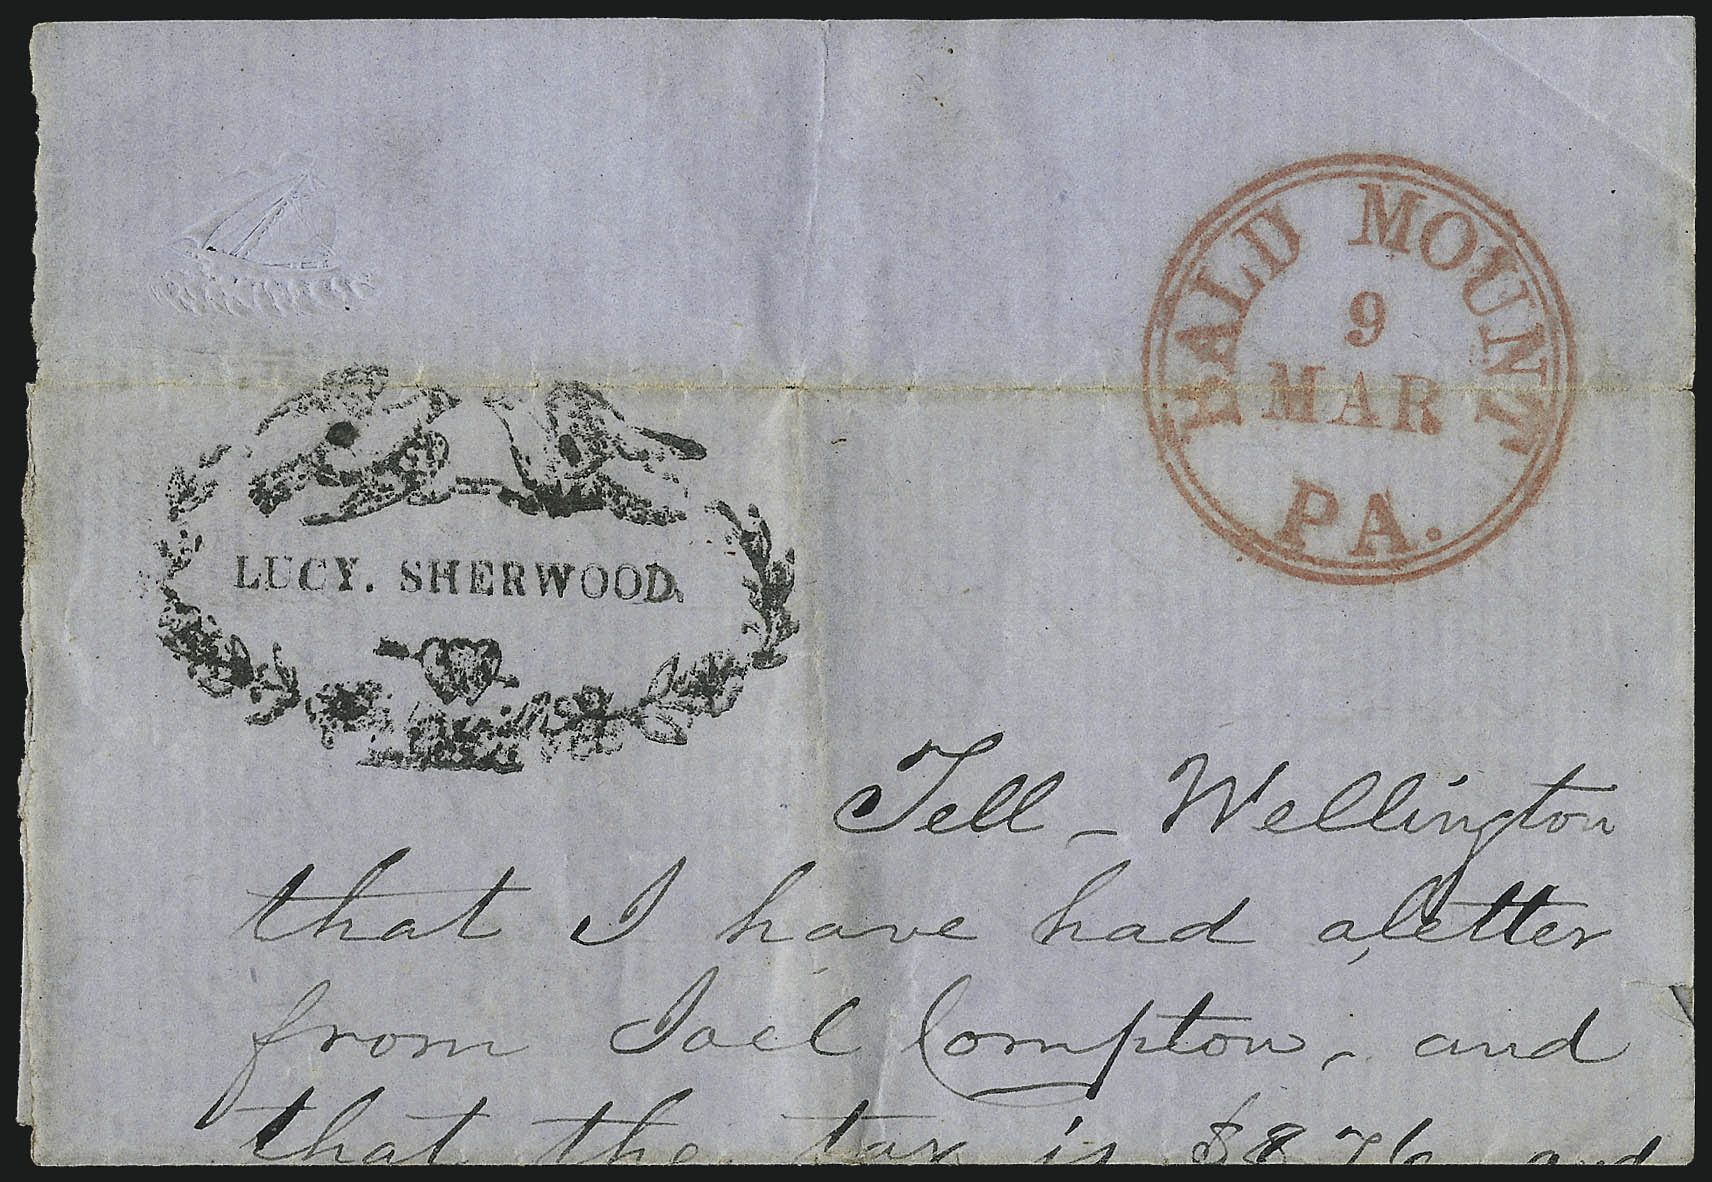 BALD MOUNT
9
MAR
PA.
LUCY. SHERWOOD.
Tell - Wellington
that I have had a letter
from Joel Compton, and
that the tax is $8.76 and